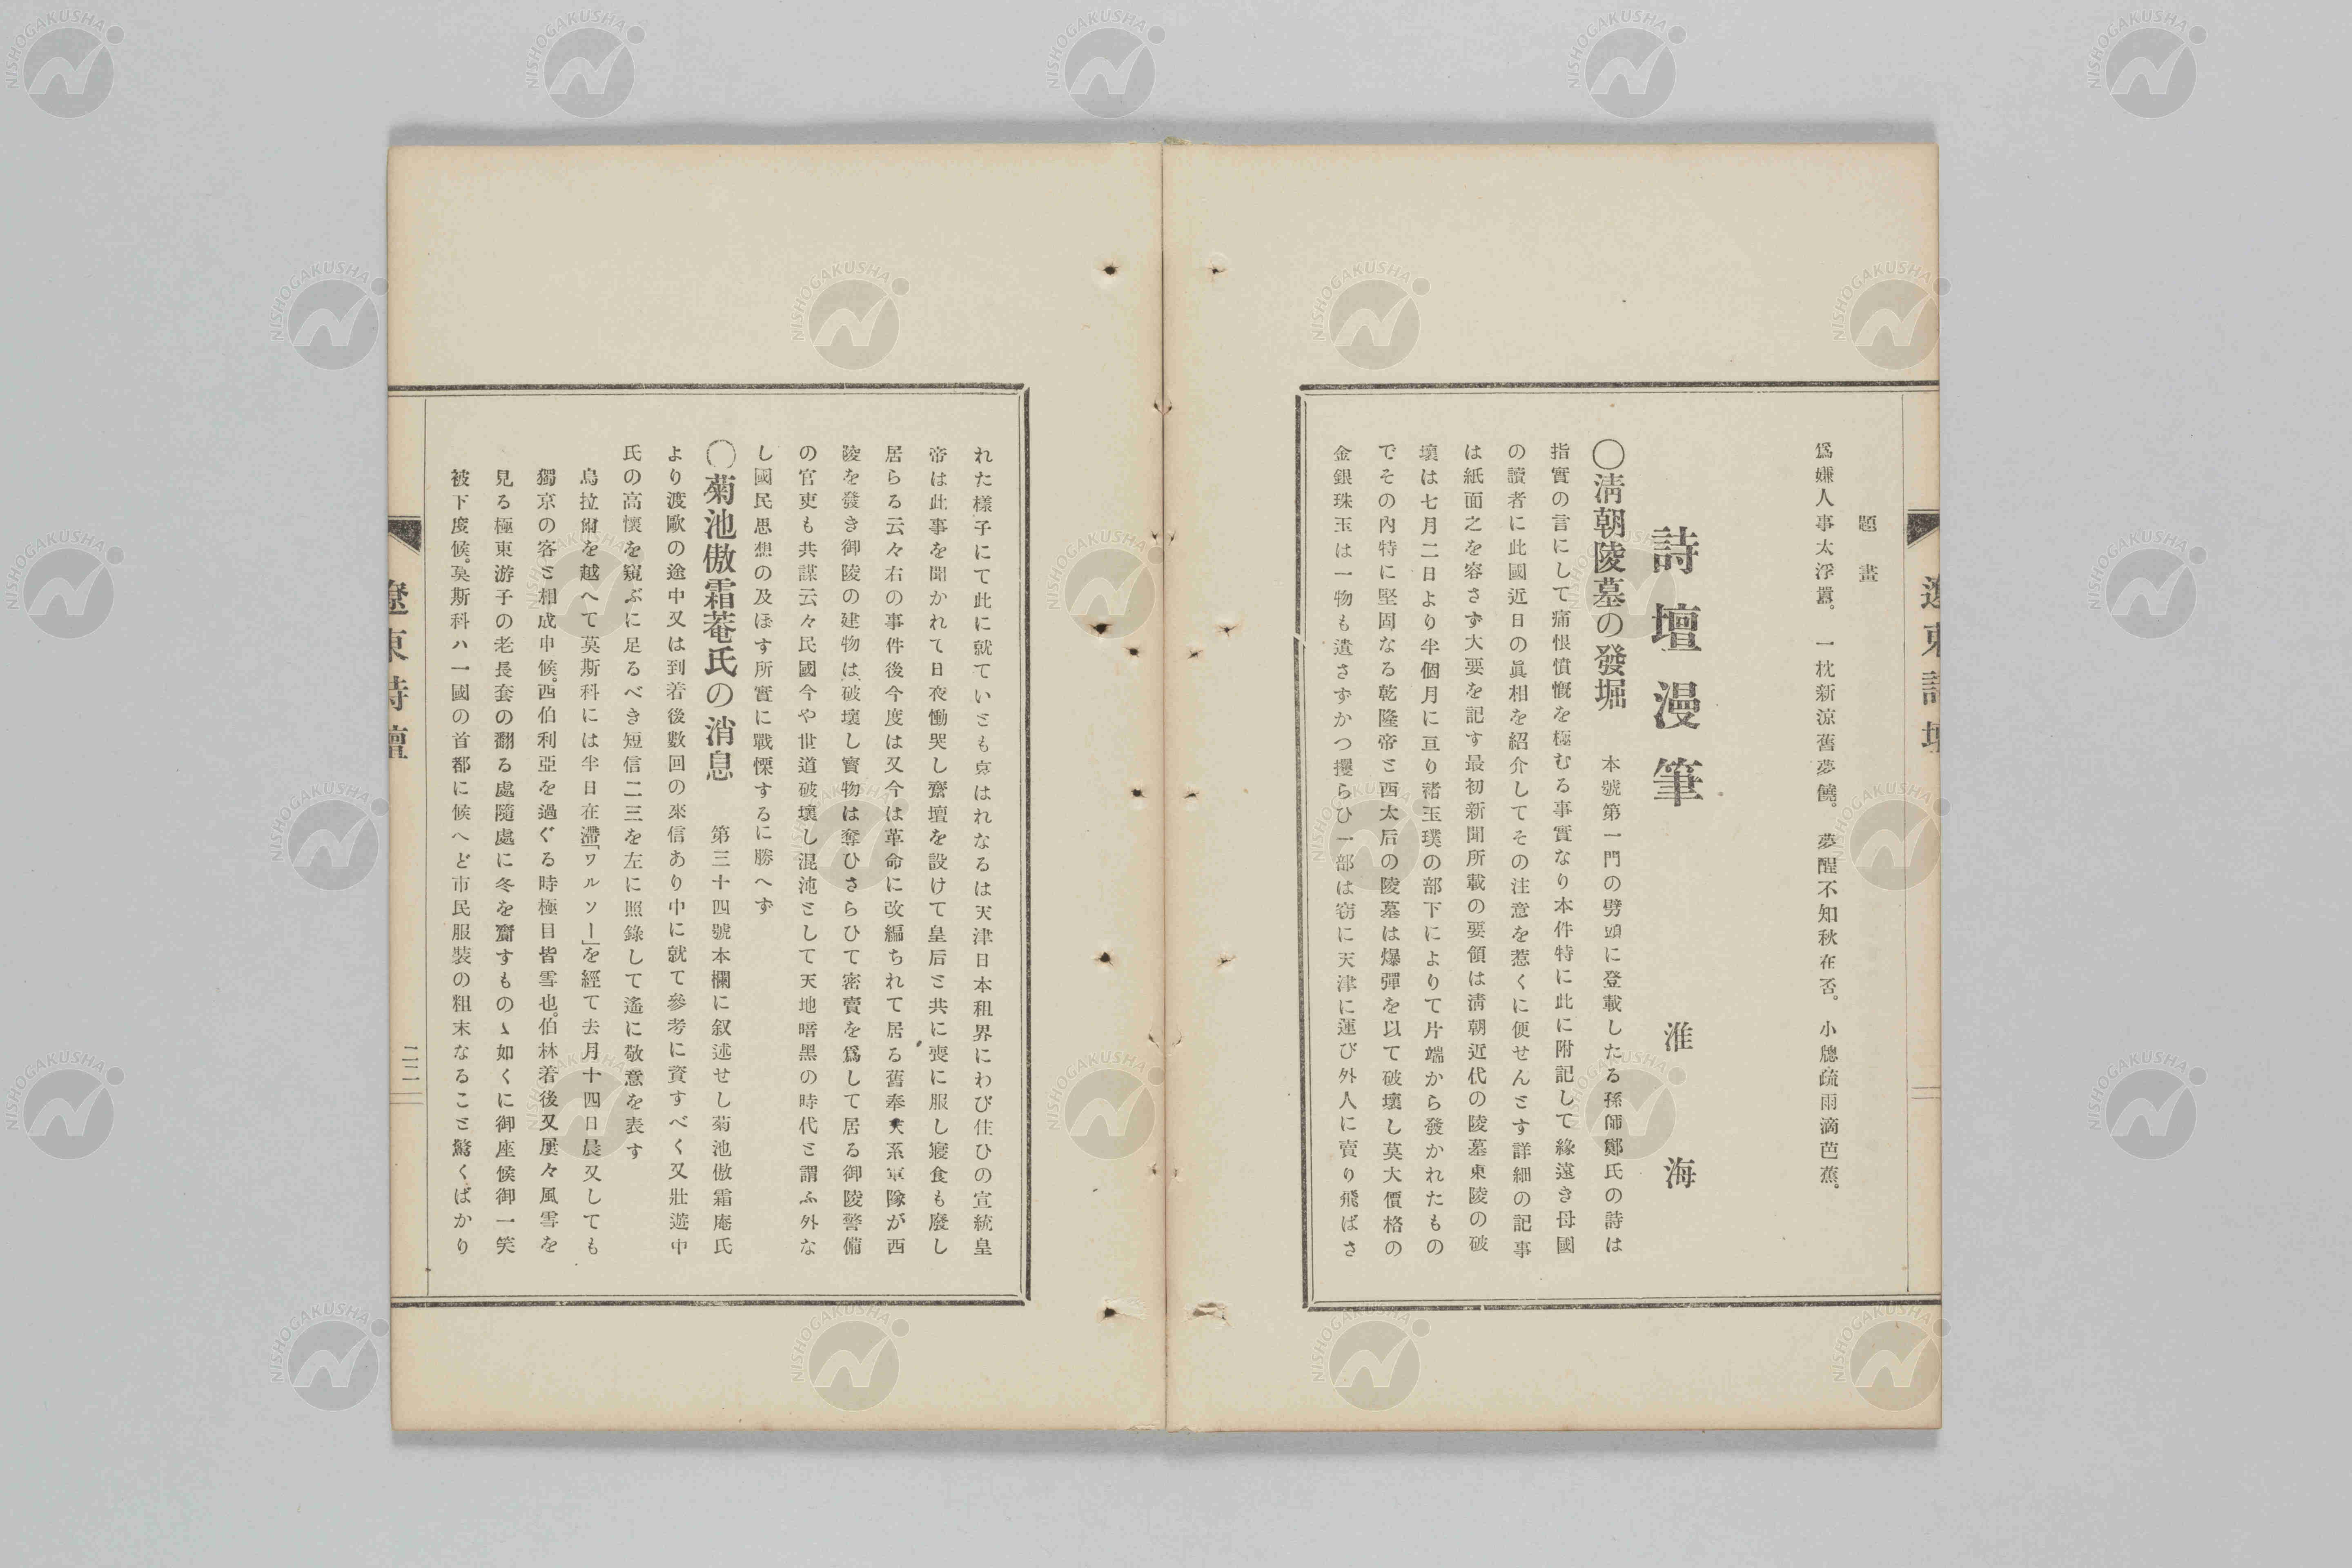 遼東詩壇
題畫
爲嫌人事太浮囂。一枕新涼舊夢饒。夢醒不知秋在否。小牕疏雨滴芭蕉。
詩壇漫筆
淮海
〇淸朝陵墓の發堀　本號第一門の劈頭に登載したる孫師鄭氏の詩は
指實の言にして痛恨憤慨を極むる事實なり本件特に此に附記して緣遠き母國
の讀者に此國近日の眞相を紹介してその注意を惹くに便せんとす詳細の記事
は紙面之を容さず大要を記す最初新聞所載の要領は淸朝近代の陵墓東陵の破
壞は七月二日より半個月に亘り褚玉璞の部下によりて片端から發かれたもの
でその內特に堅固なる乾隆帝と西太后の陵墓は爆彈を以て破壞し莫大價格の
金銀珠玉は一物も遺さずかつ攫らひ一部は窃に天津に運び外人に賣り飛ばさ
れた樣子にて此に就ていとも哀はれなるは天津日本租界にわび住ひの宣統皇
帝は此事を聞かれて日夜慟哭し齋壇を設けて皇后と共に喪に服し寢食も廢し
居らる云々右の事件後今度は又今は革命に改編ちれて居る舊奉天系軍隊が西
陵を發き御陵の建物は、破壞し寶物は奪ひさらひて密賣を爲して居る御陵警備
の官吏も共謀云々民國今や世道破壞し混沌として天地暗黑の時代と謂ふ外な
し國民思想の及ぼす所實に戰慄するに勝へず
〇菊池傲霜菴氏の消息　第三十四號本欄に叙述せし菊池傲霜庵氏
より渡歐の途中又は到着後數回の來信あり中に就て參考に資すべく又壯遊中
氏の高懷を窺ぶに足るべき短信二三を左に照錄して遙に敬意を表す
烏拉爾を越へて莫斯科には半日在滯「ワルソー」を經て去月十四日晨又しても
獨京の客と相成申候。西伯利亞を過ぐる時極目皆雪也。伯林着後又屢々風雪を
見る極東游子の老長套の翻る處隨處に冬を齎すものゝ如くに御座候御一笑
被下度候。莫斯科ハ一國の首都に候へど市民服裝の粗末なること驚くばかり
遼東詩壇
二二